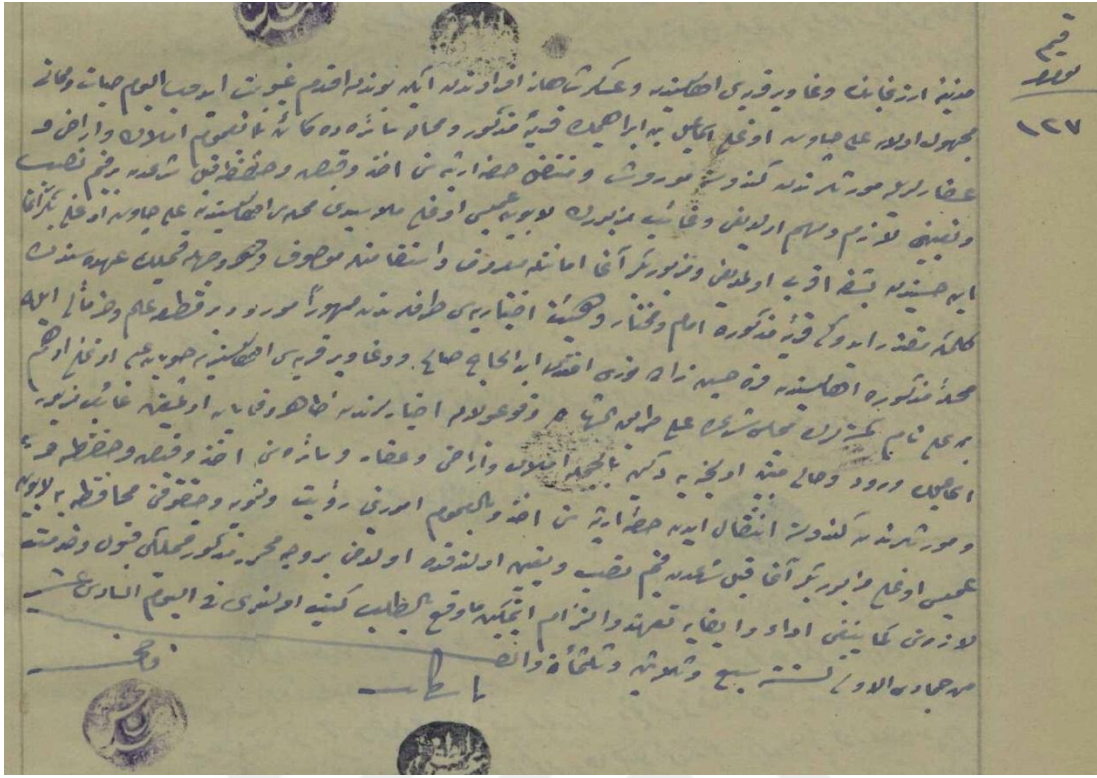 قيم
١٢٧
مدينۀ ارزنجانك وغاوير قريه‌سى اهاليسندن وعسكر شاهانه افرادندن ايكن بوندن اقدم غيوبت ايدوب اليوم حيات ومماتى
مجهول اولان على چاوش اوغلى اسماعيل بن ابراهيمك قريۀ مذكور ومحال سائره‌ده كائن بالعموم املاك واراضى و
عقارلريله مورثلرندن كندوسنه موروث ومنتقل حصۀ ارثيه‌سنى اخذ وقبض وحفظه قبل شرعدن بر قيم نصب
وتعيينى لازم ومهم اولديغى وغائب مزبورك لابوين عميسى اوغلى محله‌سى اهاليسندن على چاوش اوغلى بكر آغا
ابن حسيندن بشقه اقرب اولمديغى ومزبور بكر آغا امانتله معروف واستقامتله موصوف وهر وجهله قيملك عهده‌سندن
كلمكه مقتدر ايدوكى قريۀ مذكوره امام ومختار وهيئت اختياريه‌سى طرفلرندن ممهوراً مورود بر قطعه علم وخبر مآلى ايله
محلۀ مذكوره اهاليسندن قره حسين زاده فوزى افندى ابن الحاج صالح ووغاوير قريه‌سى اهاليسندن اوغلى ادهم
بن على نام كمسنه‌لرك مجلس شرعده على طريق الشهاده وقوعبولان اخبارلرندن ظاهر ونمايان اولمغين غائب مزبور
اسماعيلك ورود وحالى متبين اولنجيه دكين بالجمله املاك واراضى وعقار وسائره‌سنى اخذ وقبض وحفظه
ومورثلرندن كندوسنه انتقال ايدن حصۀ ارثيه‌سنى اخذ وبالعموم امورنى رؤيت وتسويه وحقوقنى محافظه‌يه لابوين
عميسى اوغلى مزبور بكر آغا قبل شرعدن قيم نصب وتعيين اولندقده اولدخى بر وجه محرر مذكور قيملكى قبول وخدمت
لازمه‌سنى كما ينبغى ادا وايفايه تعهد والتزام ايتمكين ماوقع بالطلب كتب اولندى فى اليوم السادس عشر
من جمادى الاولى لسنه سبع وثلاثين وثلثمائة والف